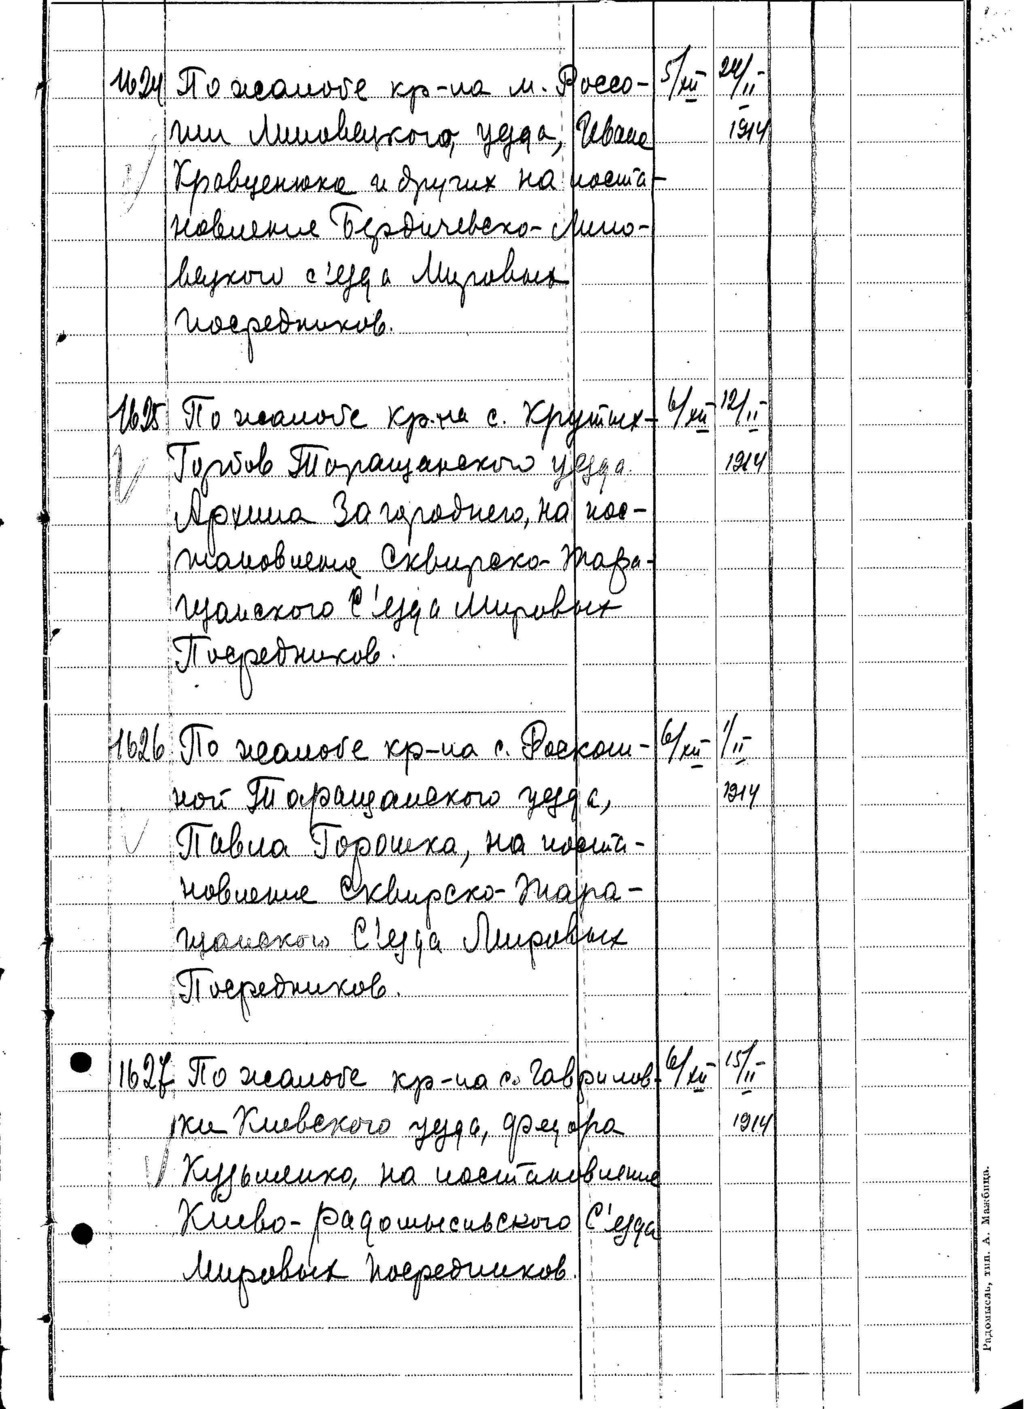 1624 По жалобе кр-на м. Россо- 5/XII 24/II-
ши Липовецкого уезда, Ивана 1914
Кравценюка и других на поста-
новление Бердичевско-Липо-
вецкого с'езда Мировых
посредников.
1625 По жалобе кр-на с. Крутых- 6/XII 12/II-
Горбов Таращанского уезда 1914
Архипа Загороднего, на пос-
тановление Сквирско-Тара-
щанского С'езда Мировых
Посредников.
1626 По жалобе кр-на с. Роскош- 6/XII 1/II-
ной Таращанского уезда, 1914
Павла Горошка, на поста-
новление Сквирско-Тара-
щанского С'езда Мировых
Посредников.
1627 По жалобе кр-на с. Гаврилов- 6/XII 15/II-
ки Киевского уезда, Федора 1914
Кузьменко, на постановление
Киево-Радомысльского С'езда
Мировых посредников.
Радомысль, тип. А. Мажбица.